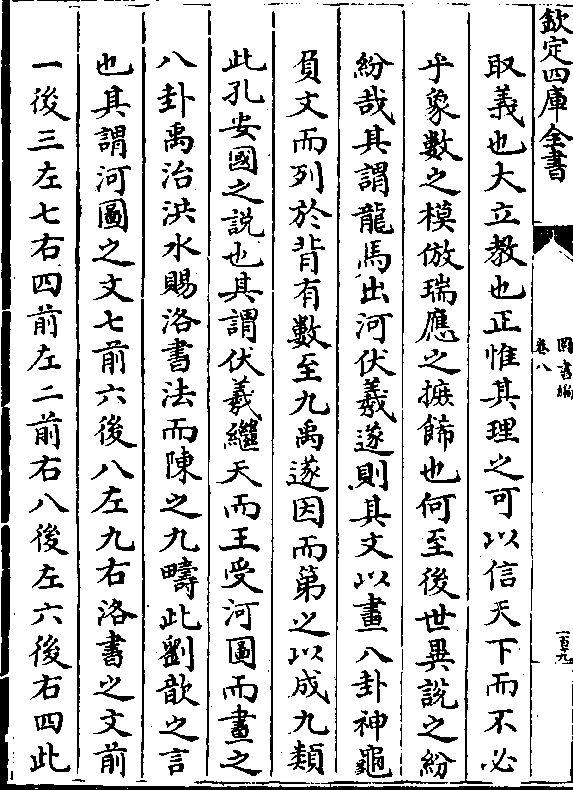 欽定四庫全書
圖書編
卷八
一百九
取義也大立教也正惟其理之可以信天下而不必
乎象數之模倣瑞應之摭飾也何至後世異說之紛
紛哉其謂龍馬出河伏羲遂則其文以畫八卦神龜
負文而列於背有數至九禹遂因而第之以成九類
此孔安國之說也其謂伏羲繼天而王受河圖而畫之
八卦禹治洪水賜洛書法而陳之九疇此劉歆之言
也其謂河圖之文七前六後八左九右洛書之文前
一後三左七右四前左二前右八後左六後右四此